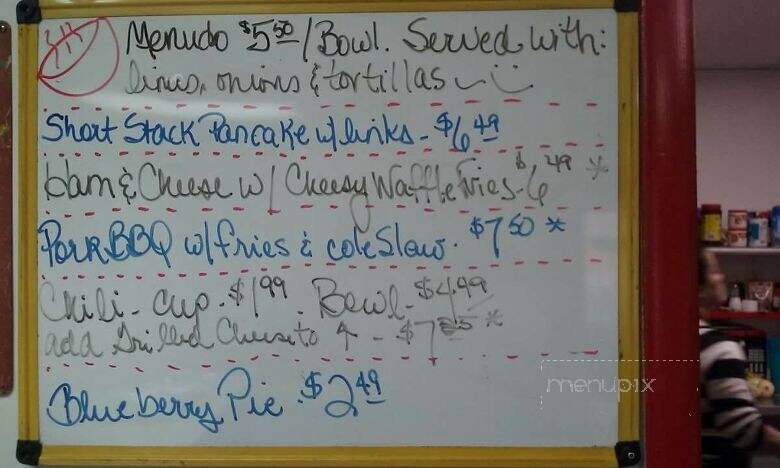 Menudo $5.50/Bowl. Served with:
limes, onions & tortillas
Short Stack Pancake w/links - $6.49
Ham & Cheese w/ Cheesy Waffle Fries - $6.49 *
Pork BBQ w/fries & coleslaw. $7.50 *
Chili - cup - $1.99. Bowl - $4.99
add Grilled Cheese to ↑ -
Blueberry Pie. $2.49
menupix